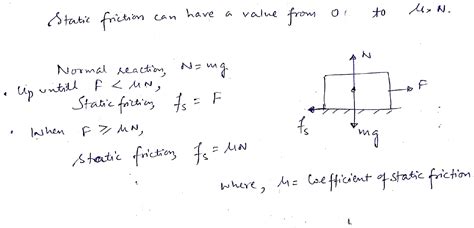 Static friction can have a value from 0, to μ×N.
Normal reaction, N=mg
• Up untill F < μN,
Static friction, fs = F
• When F ≥ μN,
Static friction, fs = μN
where, μ = Coefficient of static friction
N
F
fs
mg